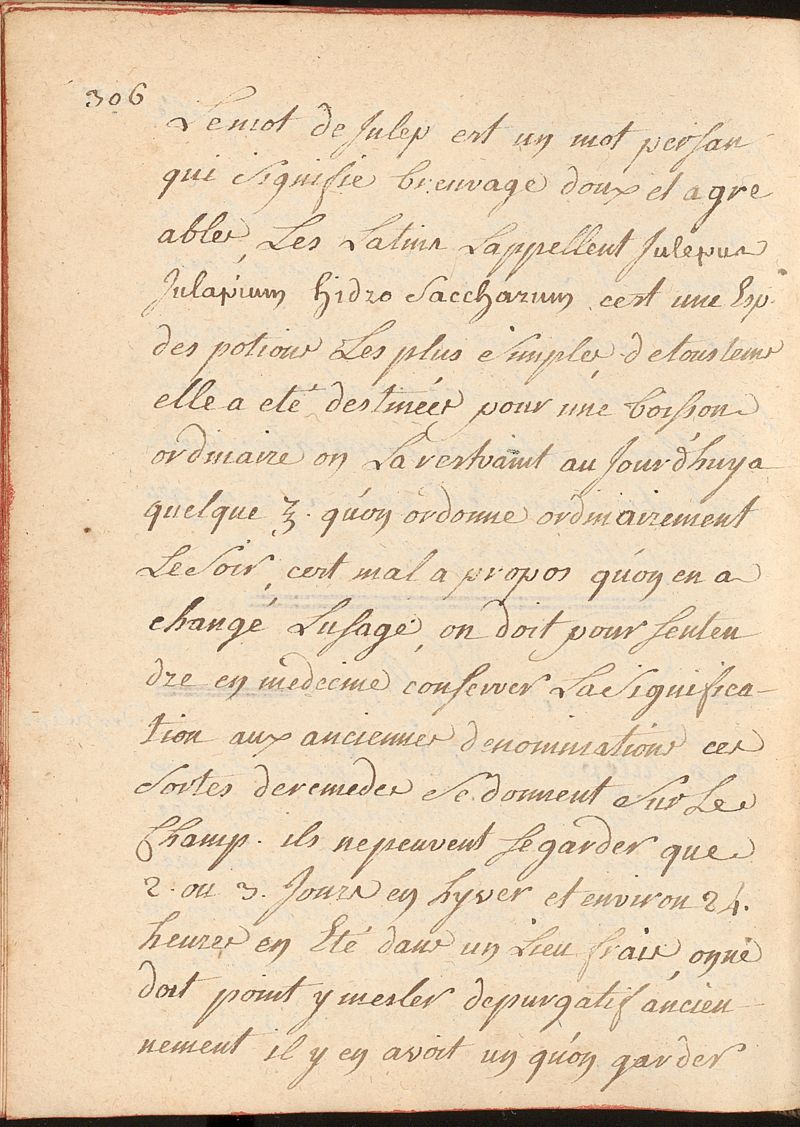 306
Lemot de Julep est un mot persan
qui Signifie breuvage doux et agre
ables, Les Latins Lappellent Julepus
Julapium hidro Saccharum cest une Esp.
des potions Les plus Simples, detoustems
elle a eté destinées pour une boisson
ordinaire on La restraint au Jourd'huy a
quelque ℥. qu'on ordonne ordinairement
Le Soir, cest mal a propos qu'on en a
changé Lusage, on doit pour senten
dre en medecine conserver La Significa-
tion aux anciennes denominations ces
Sortes deremedes Se donnent Sur Le
Champ. ils nepeuvent segarder que
2. ou 3. Jours en hyver et environ 24.
heures en Eté dans un Lieu frais, on ne
doit point y mesler depurgatif áncien-
nement il y en avoit un qu'on garder